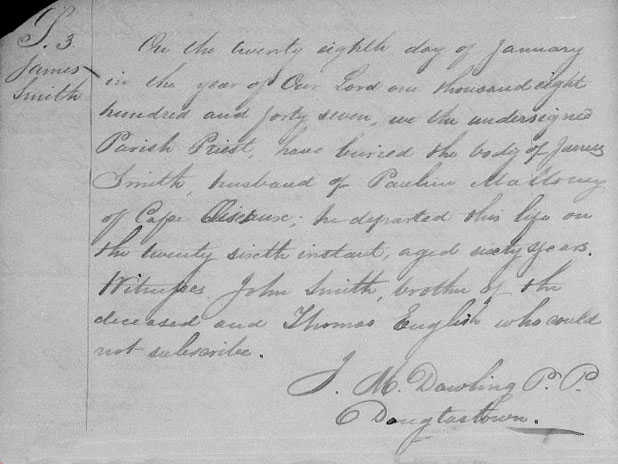 S. 3
James
Smith
On the twenty eighth day of January
in the year of Our Lord one thousand eight
hundred and forty seven, we the undersigned
Parish Priest, have buried the body of James
Smith, husband of Pauline Maloney
of Cape; he departed this life on
the twenty sixth instant, aged sixty years.
Witnesses John Smith, brother of the
deceased and Thomas English who could
not subscribe.
J. M. Dowling P. P.
Douglastown.